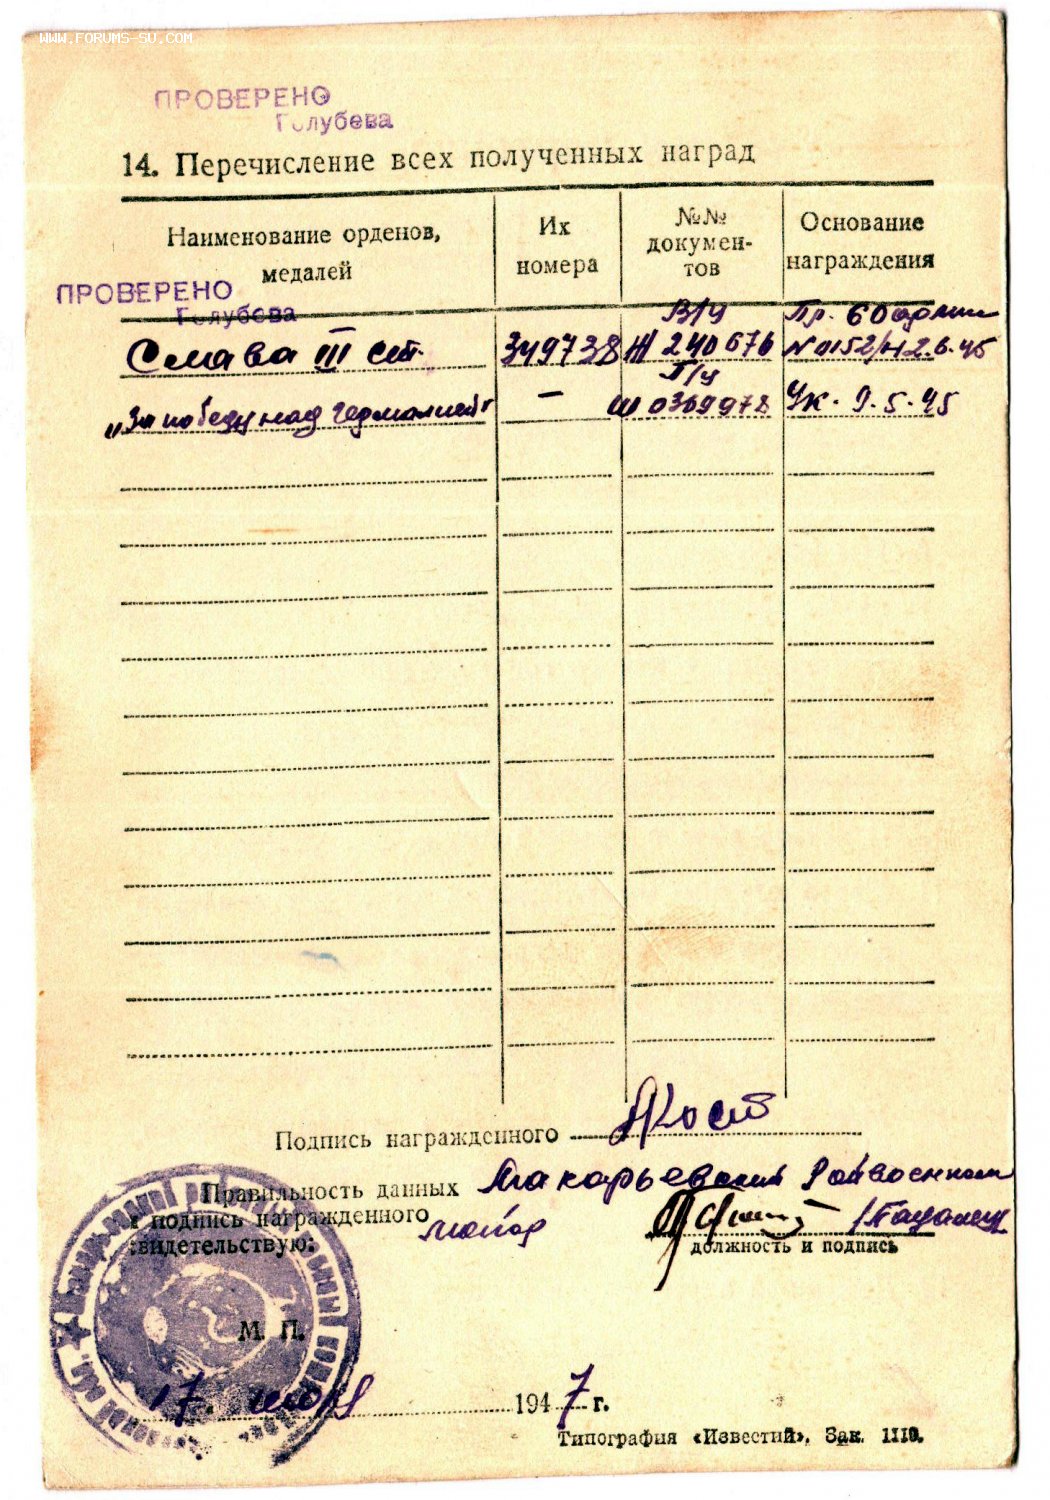 WWW.FORUMS-SU.COM
ПРОВЕРЕНО
Голубева
14. Перечисление всех полученных наград
Наименование орденов, медалей
Их номера
№№ документов
Основание награждения
ПРОВЕРЕНО
Голубева
Слава III ст. 349738 Ж 240676 Пр. 60 армии №0152/н 2.6.45
„За победу над Германией" — Ш 0369978 Ук. 9.5.45
Подпись награжденного
Правильность данных Макарьевский Райвоенком
и подпись награжденного майор
свидетельствую:
должность и подпись
М. П.
17. июля 1947 г.
Типография «Известий». Зак. 1110.